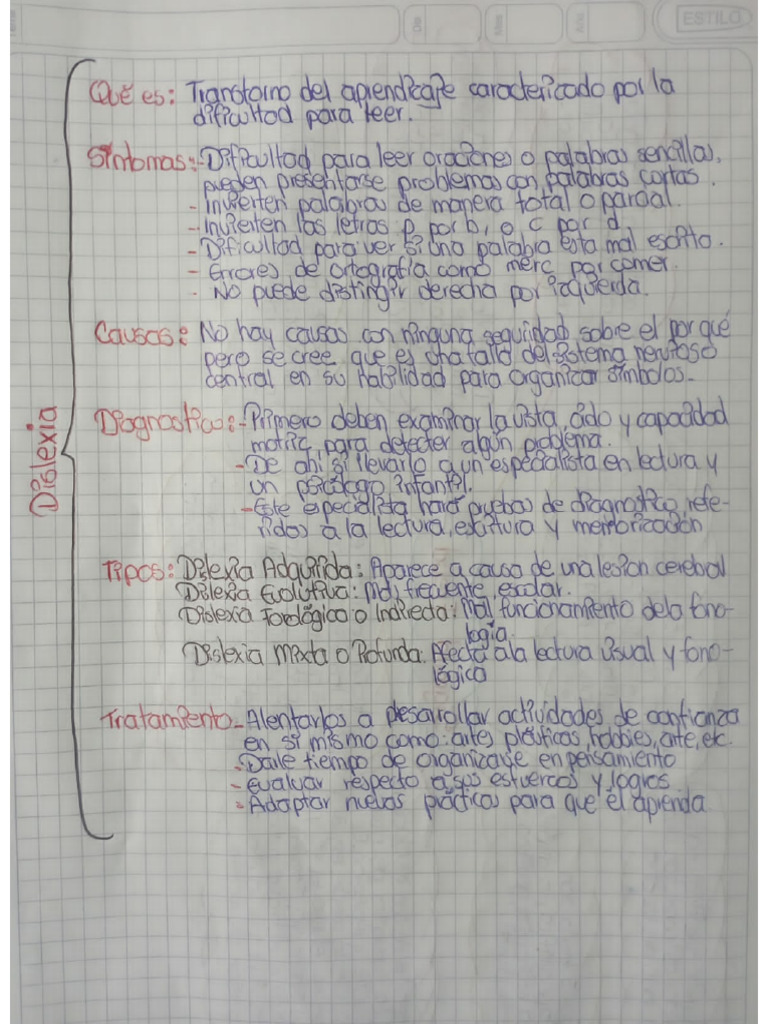 ESTILO
Qué es: Transtorno del aprendizaje caracterizado por la
dificultad para leer.
Síntomas:-Dificultad para leer oraciones o palabras sencillas,
pueden presentarse problemas con palabras cortas.
- Invierten palabras de manera total o parcial.
- Invierten las letras p por b, o c por d
- Dificultad para ver si una palabra esta mal escrito.
- Errores de ortografía como merc por comer.
- No puede distingir derecha por izquierda.
Causas: No hay causas con ninguna seguridad sobre el por qué
pero se cree que es una falla del sistema nervioso
central en su habilidad para organizar símbolos.
Dislexia
Diagnostico:-Primero deben examinar la vista, oido y capacidad
motriz, para detectar algún problema.
-De ahi si llevarlo a un especialista en lectura y
un psicólogo infantil.
-Este especialista hará pruebas de diagnostico, refe-
ridos a la lectura, escritura y memorización
Tipos: Dislexia Adquirida: Aparece a causa de una lesion cerebral
Dislexia Evolutiva: Más frecuente, escolar.
Dislexia Fonológico o Indirecta: Mal funcionamiento dela fono-
logía.
Dislexia Mixta o Profunda: Afecta ala lectura visual y fono-
lógica
Tratamiento-Alentarlos a desarrollar actividades de confianza
en si mismo como: artes plásticas, hobbies, arte, etc.
-Darle tiempo de organizarse en pensamiento
-Evaluar respecto a sus esfuerzos y logros.
-Adaptar nuevas prácticas para que el aprenda